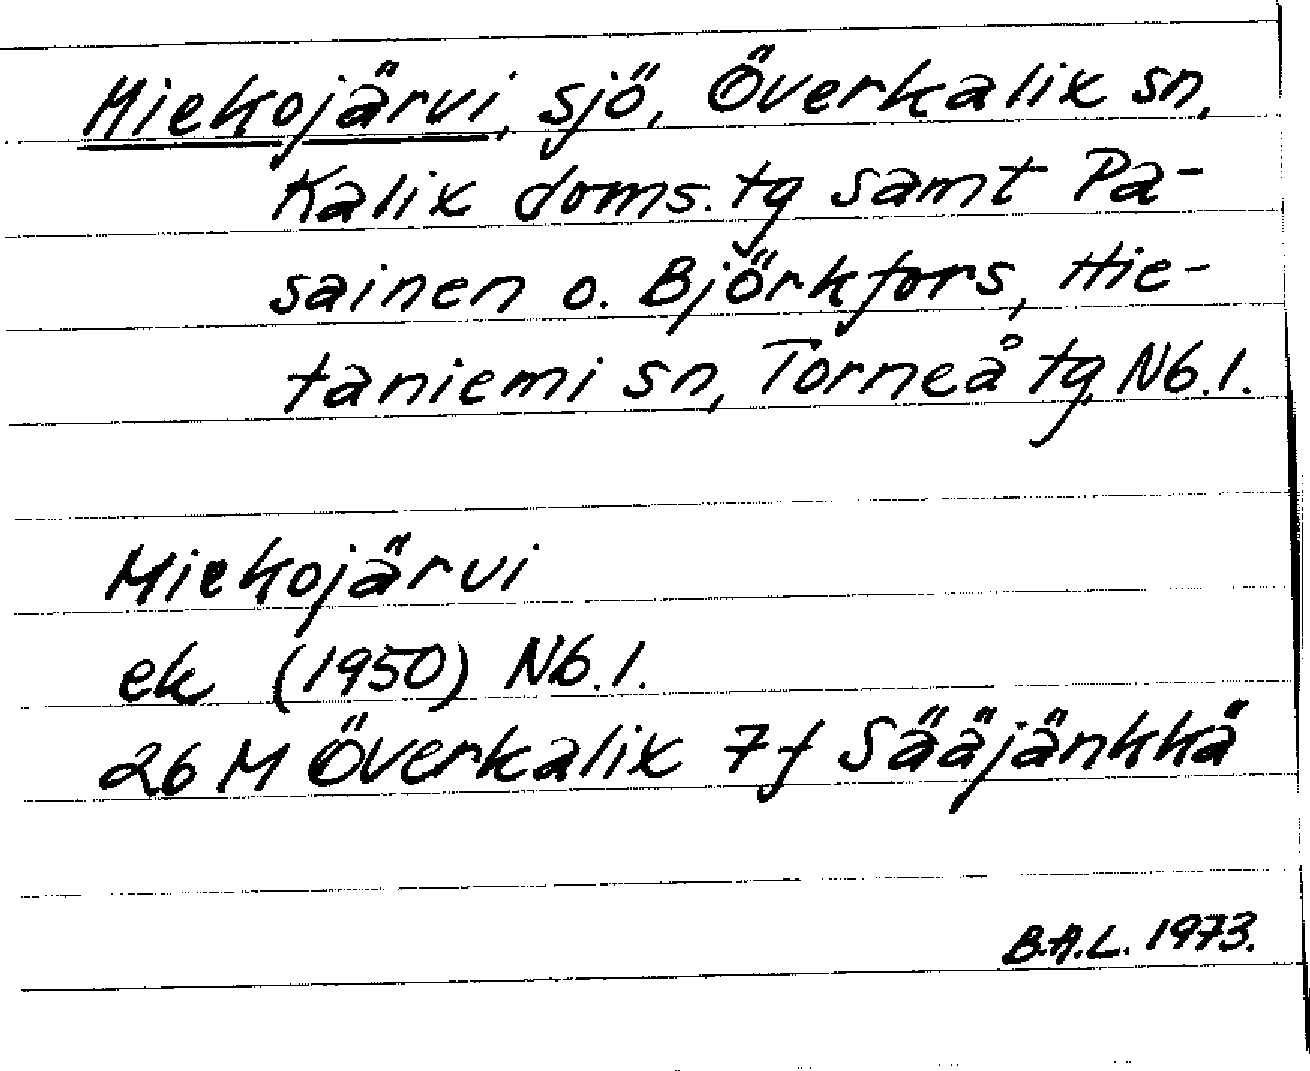 Miekojärvi, sjö, Överkalix sn,
Kalix doms. tg samt Pa-
sainen o. Björkfors, Hie-
taniemi sn, Torneå tg, Nb. l.
Miekojärvi
ek (1950) Nb. l.
26 M Överkalix 7f Sääjänkkä
B.A.L. 1973.